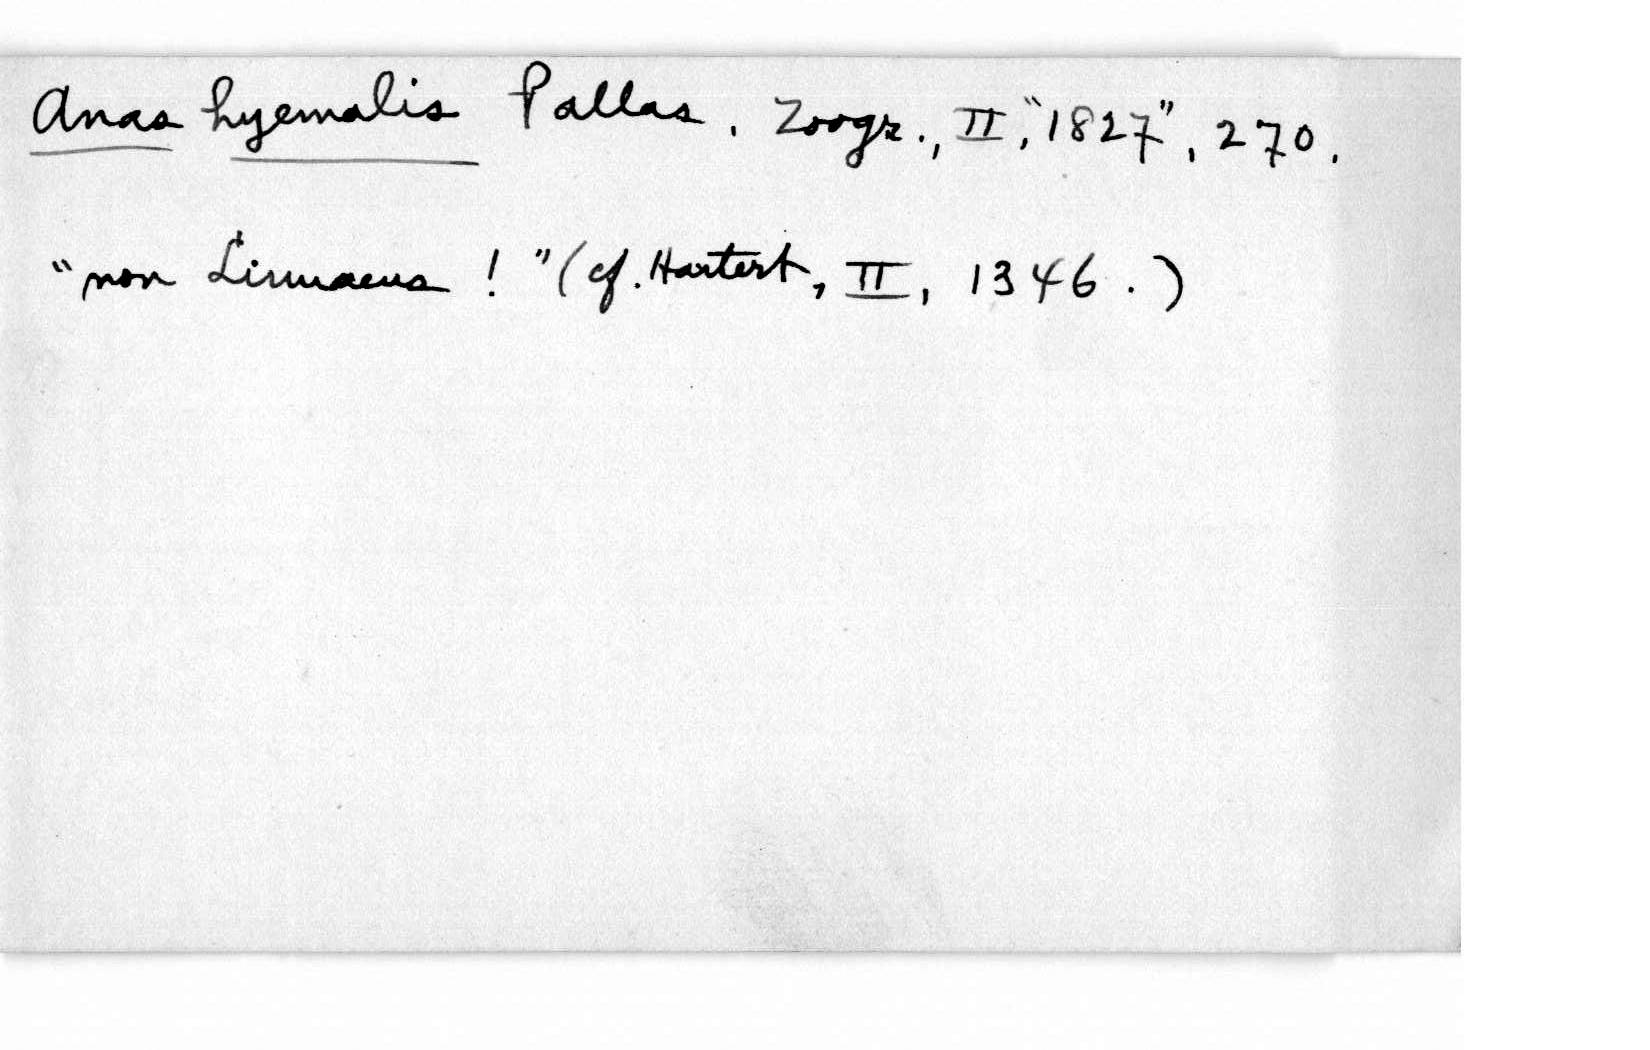 Anas hyemalis Pallas, Zoogr., II, "1827", 270.
"non Linnaeus!" (cf. Hartert, II, 1346.)